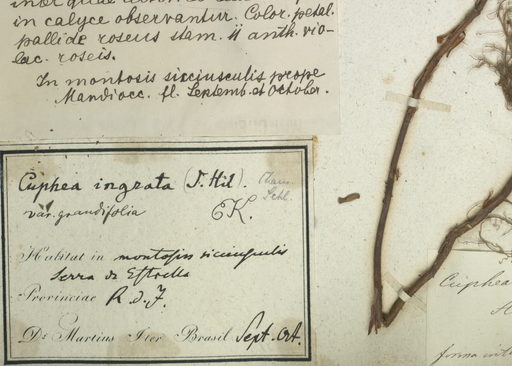 in calyce observantur. Color. petal.
pallide roseus stam. 11 anth. vio-
lac. roseis.
In montosis sicciusculis prope
Mandiocc. fl. Septemb. et October.
Cuphea ingrata (J. Hil). Cham.
Schl.
var. grandifolia EK.
Habitat in montosis sicciusculis
Serra da Estrella
Provinciae R. d. J.
Dr. Martius Iter Brasil. Sept. Oct.
Cuphea
forma